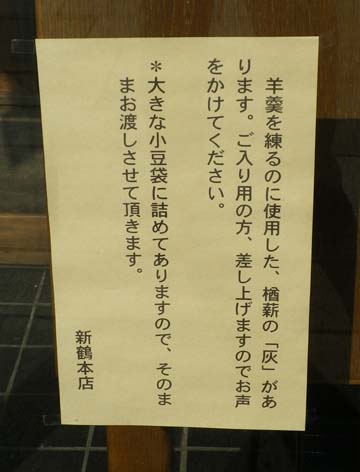 羊羹を練るのに使用した、楢薪の「灰」があ
ります。ご入り用の方、差し上げますのでお声
をかけてください。
＊大きな小豆袋に詰めてありますので、そのま
まお渡しさせて頂きます。
新鶴本店